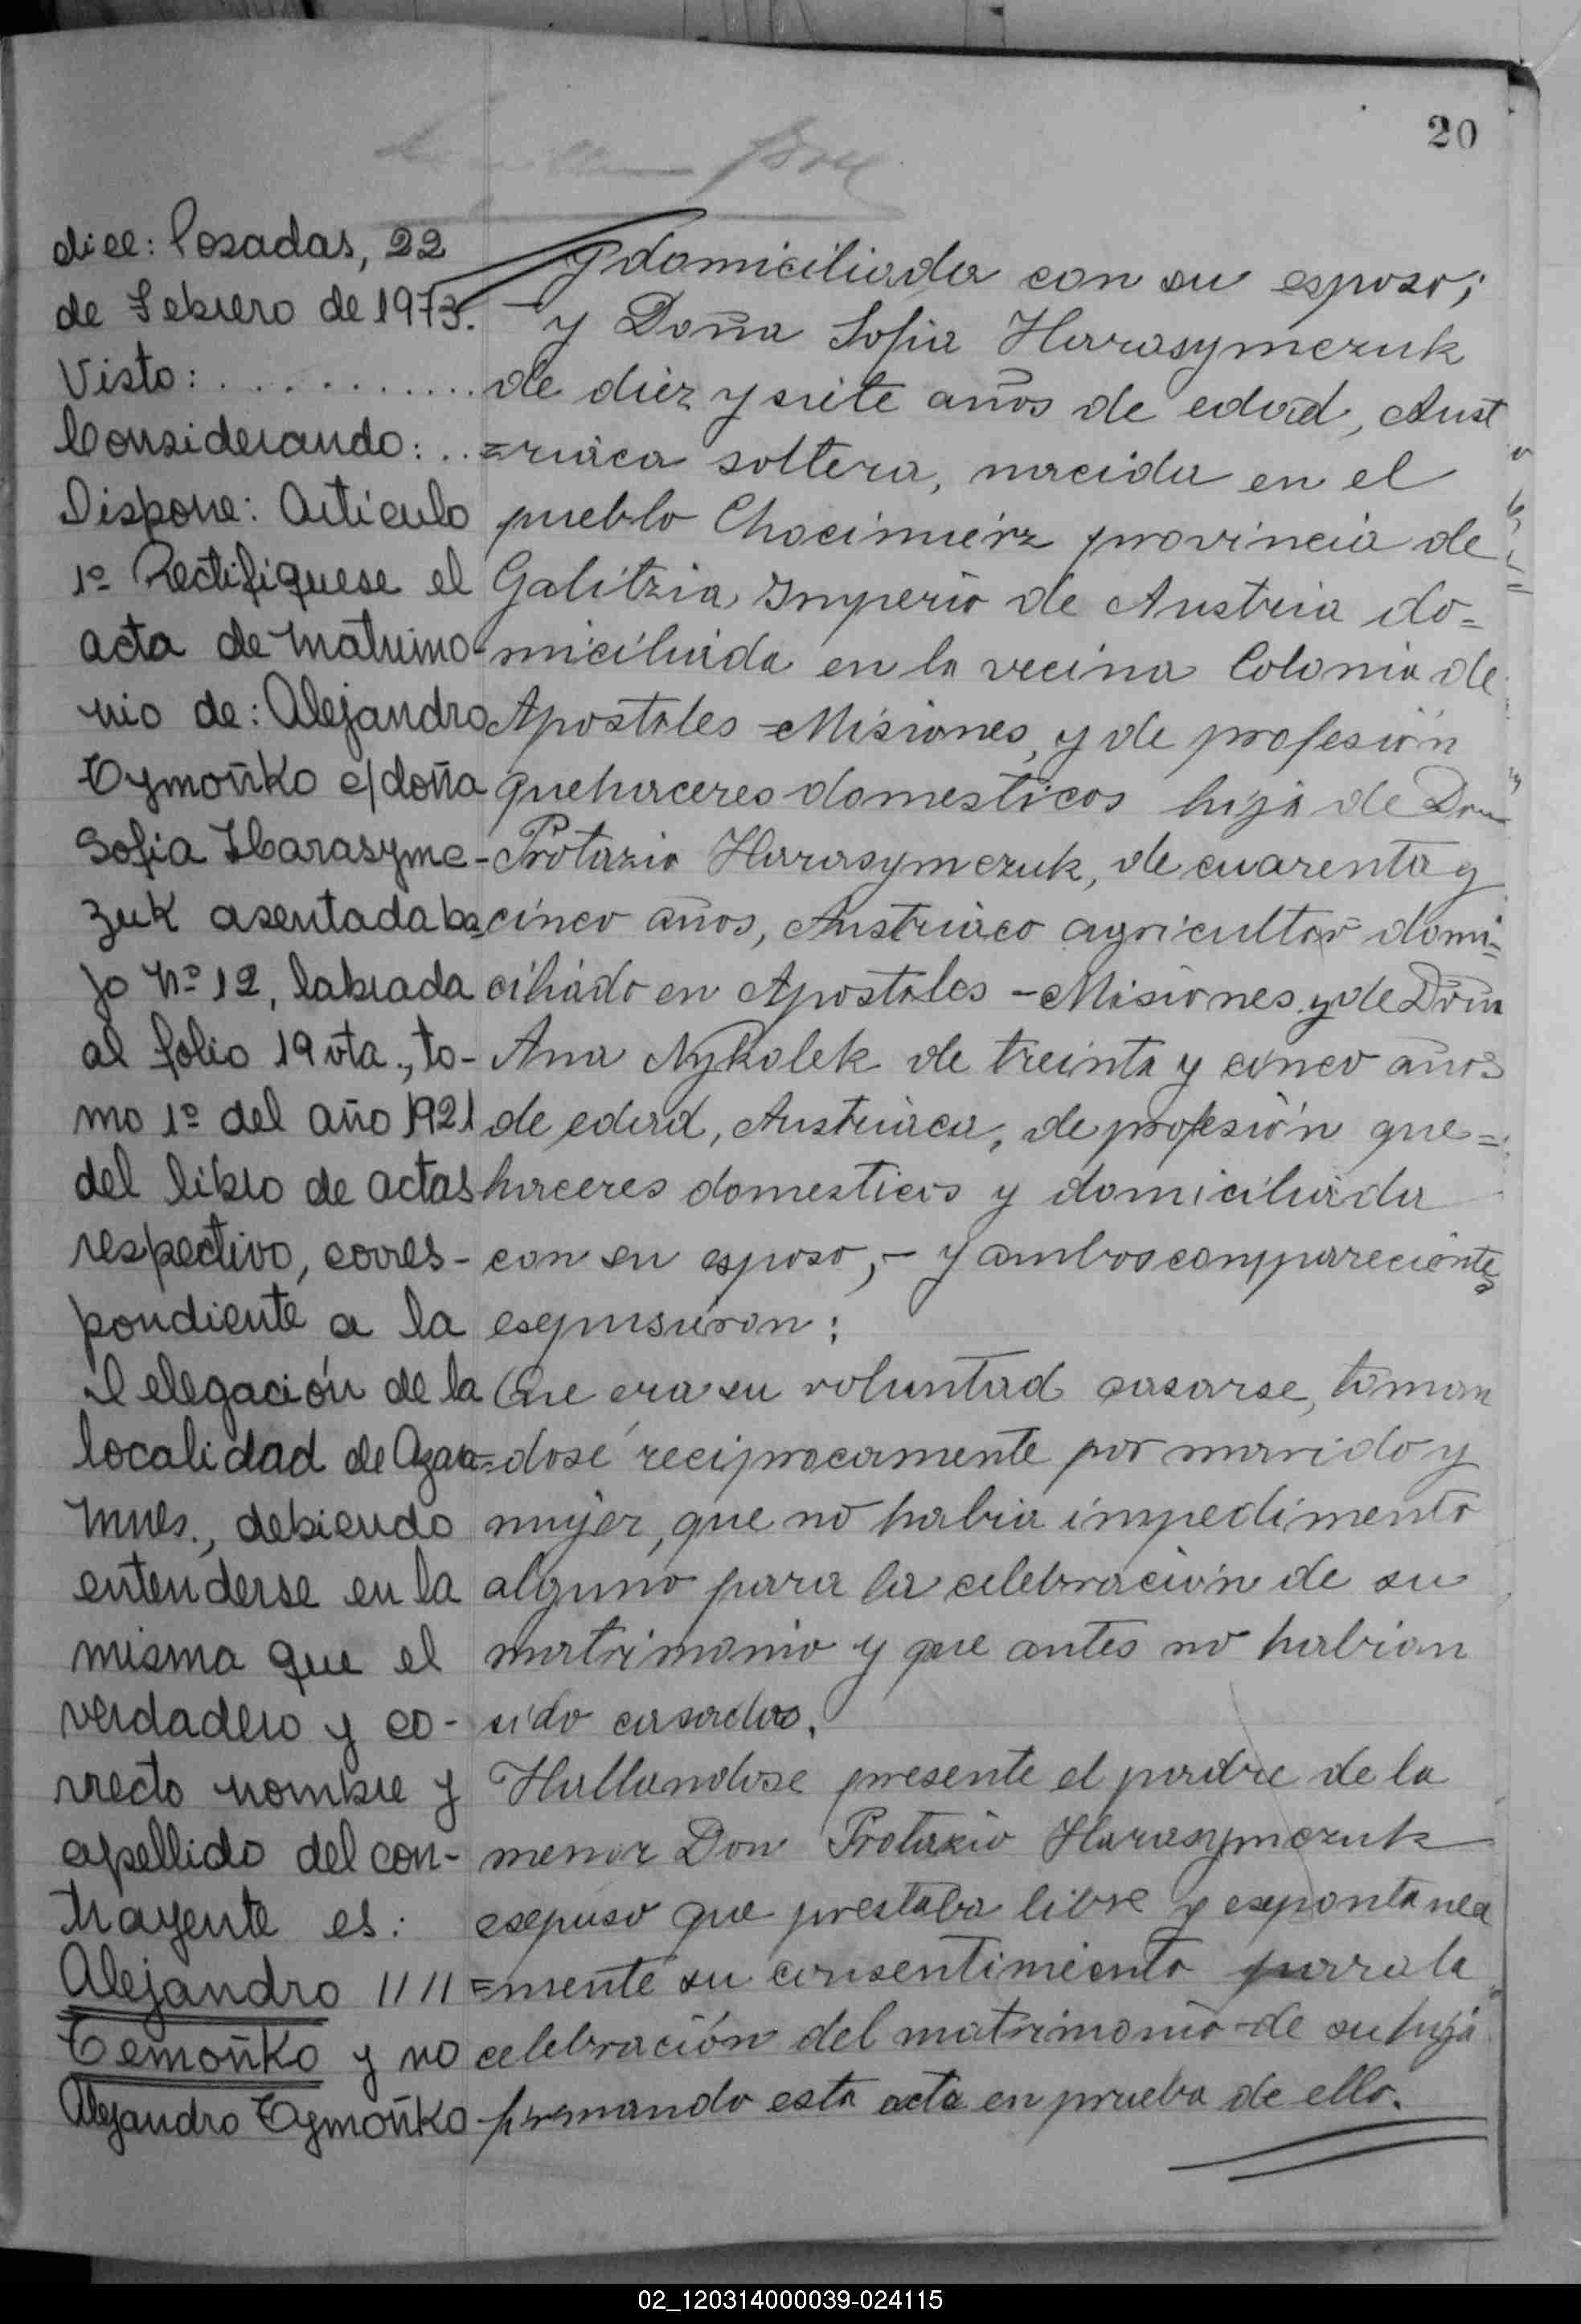 20
dice: Posadas, 22
de Febrero de 1973.
Visto: . . . . . . . . . . .
Considerando: . .
Dispone: Artículo
1º Rectifiquese el
acta de matrimo-
nio de: Alejandro
Tymoñko c/doña
Sofia Harasymc-
zuk asentada ba-
jo Nº 12, labrada
al folio 19 vta., to-
mo 1º del año 1921
del libro de actas
respectivo, corres-
pondiente a la
Delegación de la
localidad de Azara
Mnes., debiendo
entenderse en la
misma que el
verdadero y co-
rrecto nombre y
apellido del con-
trayente es:
Alejandro // //
Temoñko y no
Alejandro Tymoñko
y domiciliada con su esposo;
- y Doña Sofia Harasymczuk
de diez y siete años de edad, Aust
=riaca soltera, nacida en el
pueblo Chocimierz provincia de
Galitzia Imperio de Austria do=
miciliada en la vecina Colonia de
Apostoles - Misiones, y de profesión
quehaceres domesticos hija de Don
Protazio Harasymczuk, de cuarenta y
cinco años, Austriaco agricultor domi=
ciliado en Apostoles - Misiones y de Doña
Ana Nykolek de treinta y cinco años
de edad, Austriaca, de profesión que=
haceres domesticos y domiciliada
con su esposo, - y ambos comparecientes
esepusieron:
Que era su voluntad casarse, toman
=dose reciprocamente por marido y
mujer, que no habia impedimento
alguno para la celebración de su
matrimonio y que antes no habian
sido casados.
Hallandose presente el padre de la
menor Don Protazio Harasymczuk
esepuso que prestaba libre y esepontanea
=mente su consentimiento para la
celebración del matrimonio de su hija
firmando esta acta en prueba de ello.
02_120314000039-024115